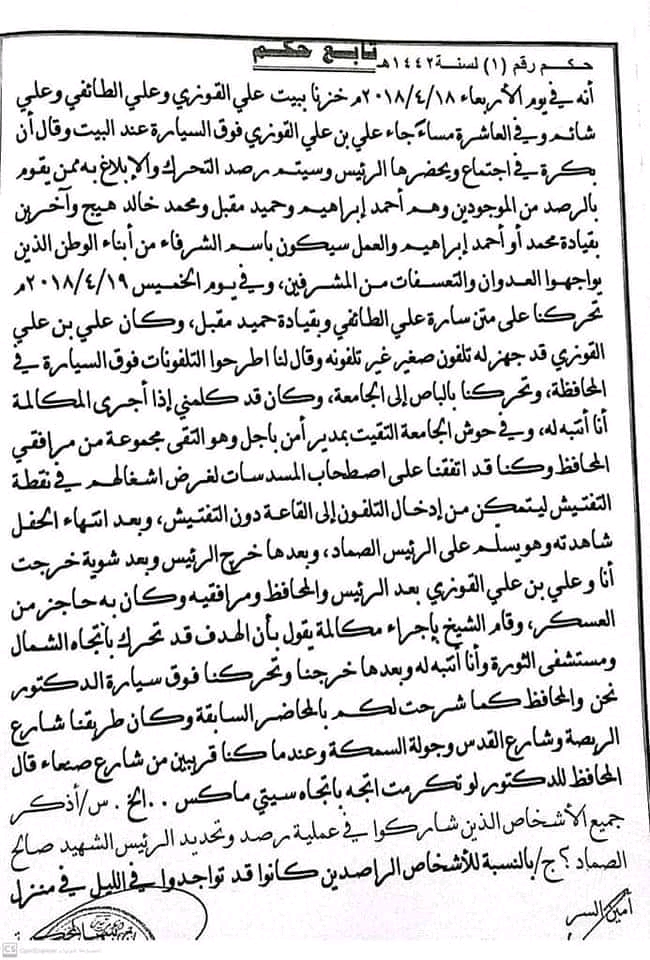 تابع حكم
حكم رقم (١) لسنة ١٤٤٢هـ
أنه في يوم الأربعاء ٢٠١٨/٤/١٨م خزنا ببيت علي القوزي وعلي الطائفي وعلي
شائم وفي العاشرة مساءً جاء علي بن علي القوزي فوق السيارة عند البيت وقال أن
بكرة في اجتماع ويحضرها الرئيس وسيتم رصد التحرك والإبلاغ به ممن يقوم
بالرصد من الموجودين وهم أحمد إبراهيم وحميد مقبل ومحمد خالد هيج وآخرين
بقيادة محمد أو أحمد إبراهيم والعمل سيكون باسم الشرفاء من أبناء الوطن الذين
يواجهوا العدوان والتعسفات من المشرفين، وفي يوم الخميس ٢٠١٨/٤/١٩م
تحركنا على متن سارة علي الطائفي وبقيادة حميد مقبل، وكان علي بن علي
القوزي قد جهز له تلفون صغير غير تلفونه وقال لنا اطرحوا التلفونات فوق السيارة في
المحافظة، وتحركنا بالباص إلى الجامعة، وكان قد كلمني إذا أجرى المكالمة
أنا أنتبه له، وفي حوش الجامعة التقيت بمدير أمن باجل وهو التقى مجموعة من مرافقي
المحافظ وكنا قد اتفقنا على اصطحاب المسدسات لغرض اشغالهم في نقطة
التفتيش ليتمكن من إدخال التلفون إلى القاعة دون التفتيش، وبعد انتهاء الحفل
شاهدته وهو يسلّم على الرئيس الصماد، وبعدها خرج الرئيس وبعد شوية خرجت
أنا وعلي بن علي القوزي بعد الرئيس والمحافظ ومرافقيه وكان به حاجز من
العسكر، وقام الشيخ بإجراء مكالمة يقول بأن الهدف قد تحرك باتجاه الشمال
ومستشفى الثورة وأنا أنتبه له وبعدها خرجنا وتحركنا فوق سيارة الدكتور
نحن والمحافظ كما شرحت لكم بالمحاضر السابقة وكان طريقنا شارع
الربصة وشارع القدس وجولة السمكة وعندما كنا قريبين من شارع صنعاء قال
المحافظ للدكتور لو تكرمت اتجه باتجاه سيتي ماكس ..الخ . س/أذكر
جميع الأشخاص الذين شاركوا في عملية رصد وتحديد الرئيس الشهيد صالح
الصماد؟ ج/ بالنسبة للأشخاص الراصدين كانوا قد تواجدوا في الليل في منزل
أمين السر
CS CamScanner